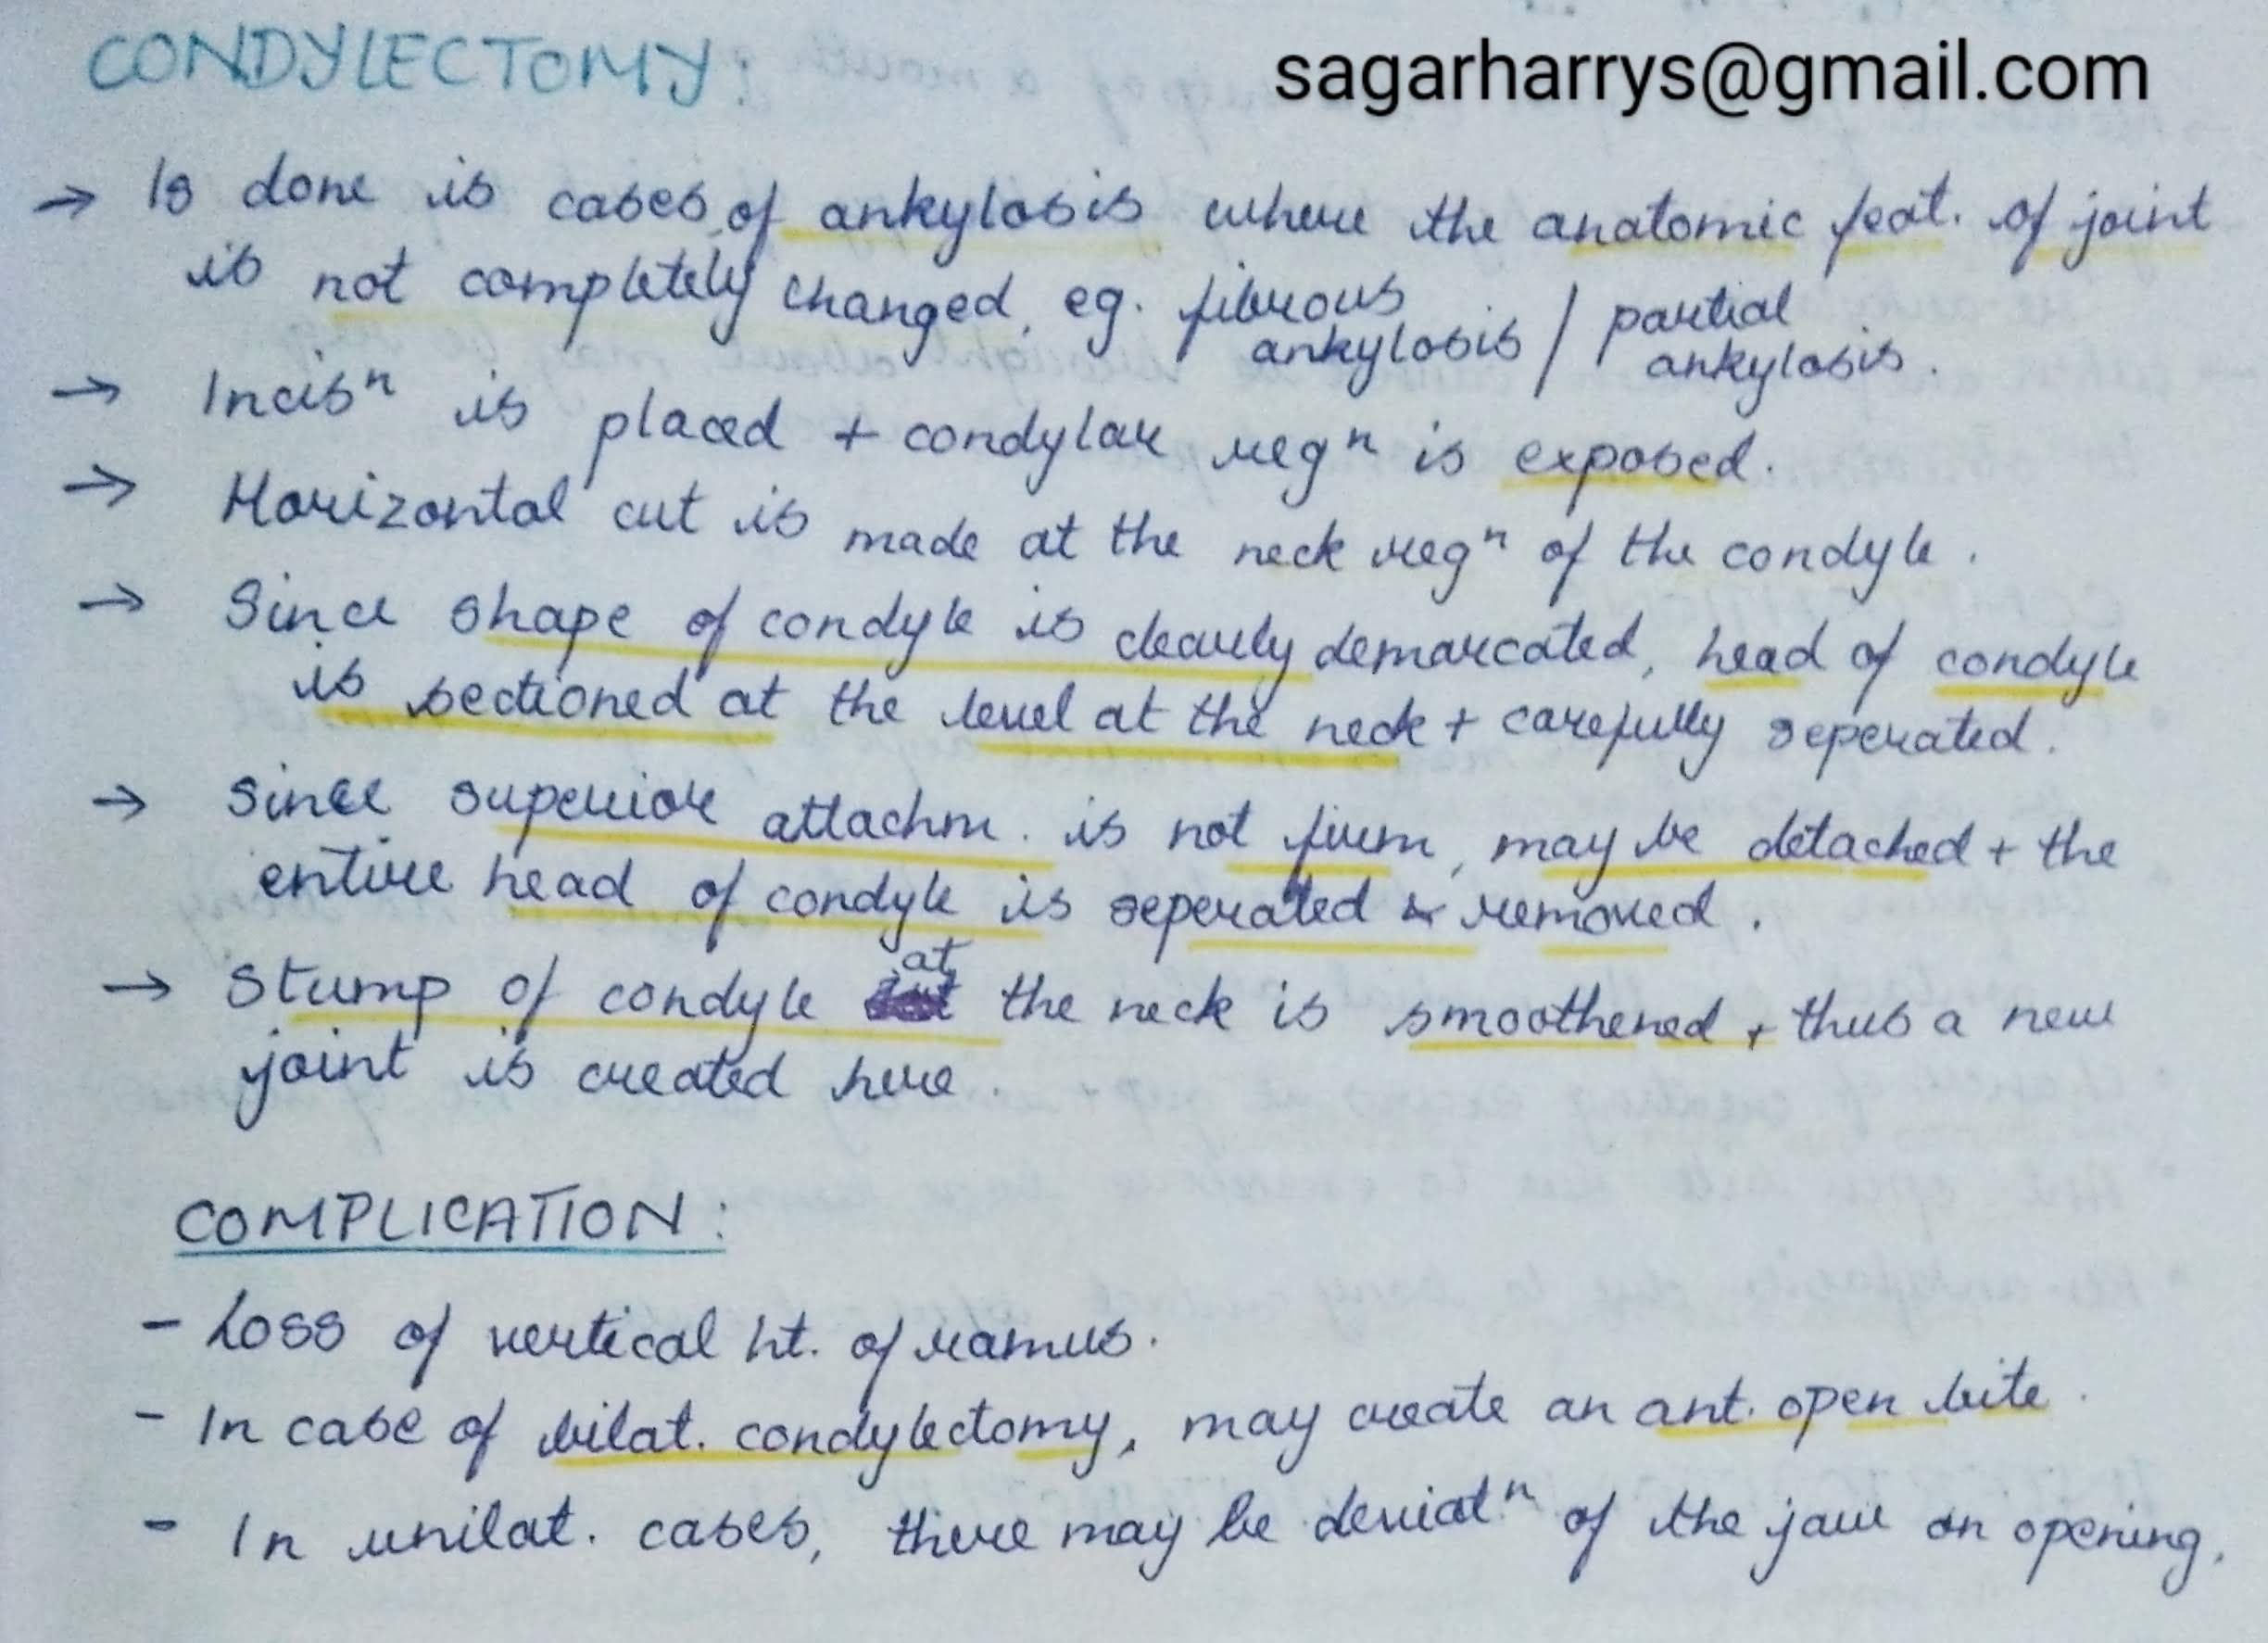 CONDYLECTOMY:
sagarharrys@gmail.com
→ Is done is cases of ankylosis where the anatomic feat. of joint
is not completely changed, eg. fibrous ankylosis / partial ankylosis.
→ Incisⁿ is placed + condylar regⁿ is exposed.
→ Horizontal cut is made at the neck regⁿ of the condyle.
→ Since shape of condyle is clearly demarcated, head of condyle
is sectioned at the level at the neck + carefully seperated.
→ Since superior attachm. is not firm, may be detached + the
entire head of condyle is seperated & removed.
→ Stump of condyle at the neck is smoothened + thus a new
joint is created here.
COMPLICATION:
- Loss of vertical ht. of ramus.
- In case of bilat. condylectomy, may create an ant. open bite.
- In unilat. cases, there may be deviatⁿ of the jaw on opening.